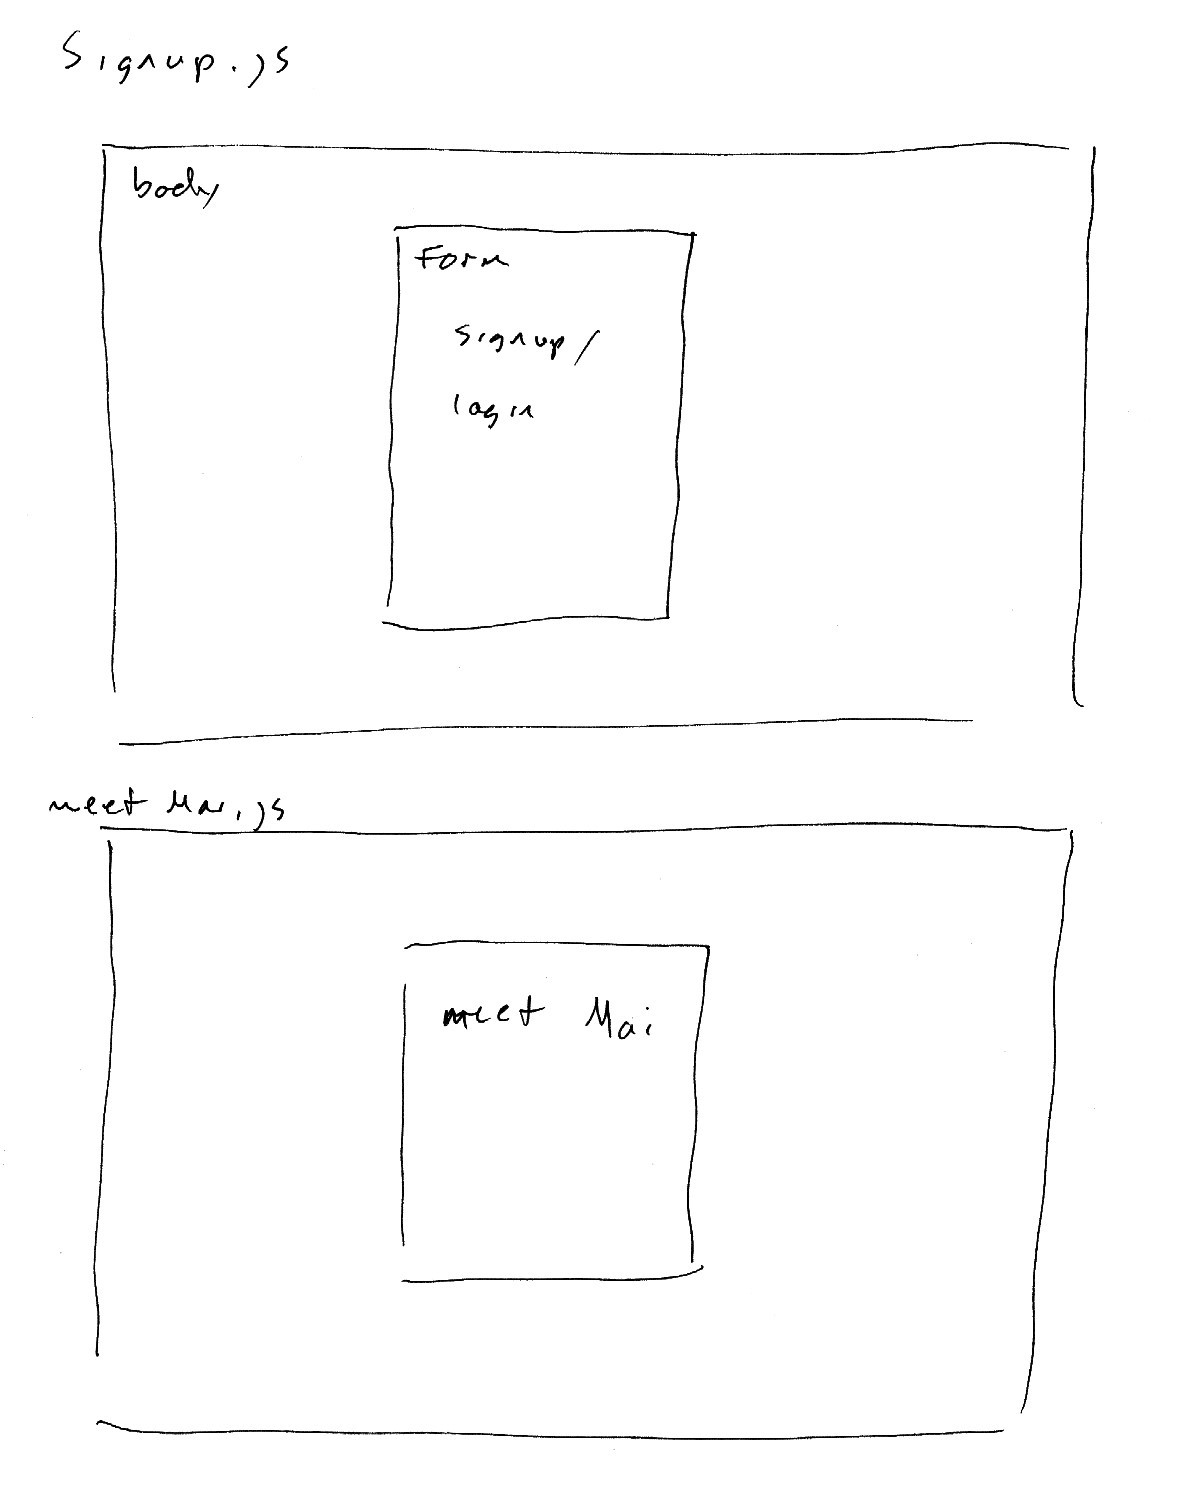 Signup.js
body
Form
signup/
login
meet Mai.js
meet Mai